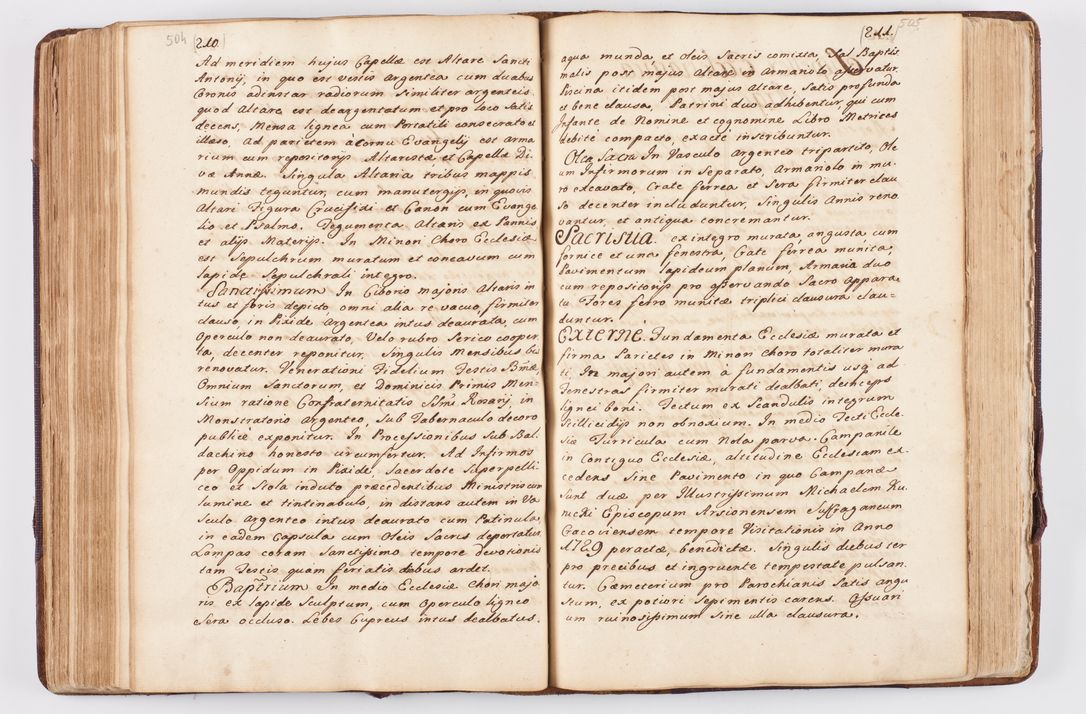 504 (210.)
Ad meridiem hujus Capellæ est Altare Sancti
Antonij, in quo est vestis argentea cum duabus
Coronis adinstar radiorum Similiter argenteis.
quod Altare est deargentatum et pro loco Satis
decens, Mensa lignea cum Portatili consecrato et
illæso, Ad parietem à cornu Evangelij est Arma
rium cum repositorijs Altaristæ et Capellæ Di-
væ Annæ. Singula Altaria tribus mappis
mundis teguntur, cum manutergijs, in quovis
Altari Figura Crucifixi et Canon cum Evange
lio et Psalmo. Tegumenta Altaris ex Pannis
et alijs Materijs. In Minori Choro Ecclesiæ
est Sepulchrum muratum et concavum cum
lapide Sepulchrali integro.
Sanctissimum In Ciborio majoris Altaris in
tus et foris depicto, omni alia re vacuo, firmiter
clauso, in Pixide argentea intus deaurata, cum
Operculo non deaurato, Velo rubro Serico cooper
ta, decenter reponitur, Singulis Mensibus bis
renovatur. Venerationi Fidelium Festis Bmæ,
Omnium Sanctorum, et Dominicis Primis Men-
sium ratione Confraternitatis SSmi Rosarij in
Monstratorio argenteo, Sub Tabernaculo decoro
publicè exponitur. In Processionibus Sub Bal-
dachino honesto circumfertur. Ad Infirmos
per Oppidum in Pixide, Sacerdote Superpelli
ceo et Stola induto præcedentibus Ministris cum
lumine et tintinabulo, in distans autem in Va
sculo argenteo intus deaurato cum Patinula,
in eadem Capsula cum Oleis Sacris deportatur
Lampas coram Sanctissimo tempore devotionis
tam Festis quam feriatis diebus ardet.
Baptrium In medio Ecclesiæ Chori majo
ris ex lapide Sculptum, cum Operculo ligneo
Sera occluso. Lebes Cupreus intus dealbatus.
(211.) 505
aqua munda et oleis Sacris comixta, Sal Baptis
malis post majus Altare in Armariolo asservatur.
Piscina itidem post majus Altare, Satis profunda
et bene clausa, Patrini duo adhibentur, qui cum
Infante de Nomine et cognomine Libro Metrices
debitè compacto, exactè inscribuntur.
Olea Sacra In Vasculo Argenteo tripartito, Ole
um Infirmorum in Separato, Armariolo in mu-
ro excavato, Crate ferrea et Sera firmiter clau
so decenter includuntur, Singulis Annis reno
vantur, et antiqua concremantur.
Sacristia. ex integro murata, angusta cum
fornice et una fenestra, Crate ferrea munita,
Pavimentum lapideum planum, Armaria duo
cum repositorijs pro asservando Sacro Appara-
tu Fores ferro munitæ triplici clausura clau-
duntur.
Externè. Fundamenta Ecclesiæ murata et
firma Parietes in Minori Choro totaliter mura
ti, In majori autem à fundamentis usq ad
Fenestras firmiter murati dealbati, deinceps
lignei boni. Tectum ex Scandulis integrum
Stillicidijs non obnoxium. In medio Tecti Eccle-
siæ Turricula cum Nola parva. Campanile
in Contiguo Ecclesiæ, altitudine Ecclesiam ex-
cedens, Sine Pavimento in quo Campanæ
Sunt duæ per Illustrissimum Michaelem Ku-
nicki Episcopum Arsionensem Suffraganeum
Cracoviensem tempore Visitationis in Anno
1729 peractæ, benedictæ. Singulis diebus ter
pro precibus et ingruente tempestate pulsan-
tur. Cæmeterium pro Parochianis Satis angu
stum, ex potiori Sepimentis carens. Ossuari
um ruinosissimum Sine ulla clausura.